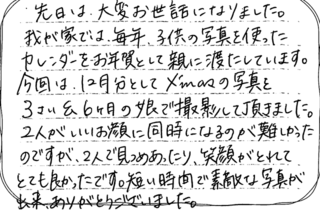 先日は、大変お世話になりました。
我が家では、毎年、子供の写真を使った
カレンダーをお年賀として親に渡しています。
今回は、12月分としてX'masの写真を
3才&6ヶ月の娘で撮影して頂きました。
2人がいいお顔に同時になるのが難しかった
のですが、2人で見つめあったり、笑顔がとれて
とても良かったです。短い時間で素敵な写真が
出来、ありがとうございました。